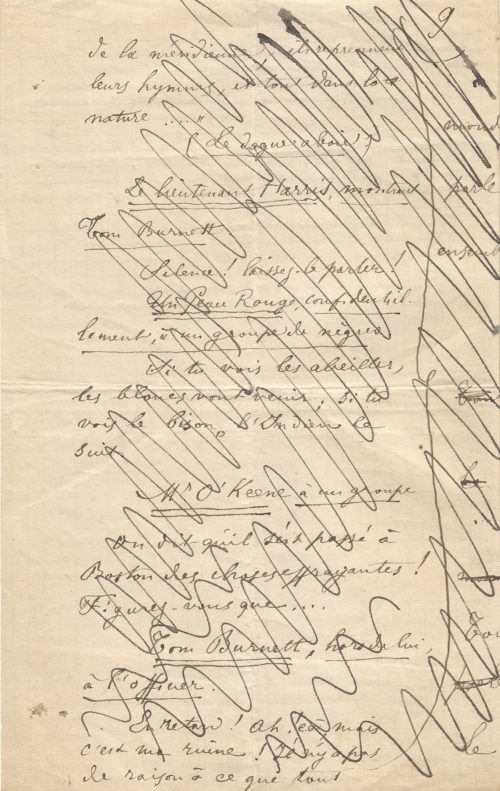 9
de la méridienne, ils reprennent
leurs hymnes, et tout dans la
nature ....."
(Le dogue aboie)
Le lieutenant Harris, montrant
Tom Burnett.
Silence! laissez-le parler!
Un Peau Rouge, confidentiel-
lement, à un groupe de nègres
Si tu vois les abeilles,
les blancs vont venir; si tu
vois le bison, l'Indien le
suit.
Mr O'Keene à un groupe
On dit qu'il s'est passé à
Boston des choses effrayantes!
Figurez-vous que ....
Tom Burnett, hors de lui,
à l'officier.
En retard! Ah! ça, mais
c'est ma ruine! Il n'y a pas
de raison à ce que tout
parle
Le